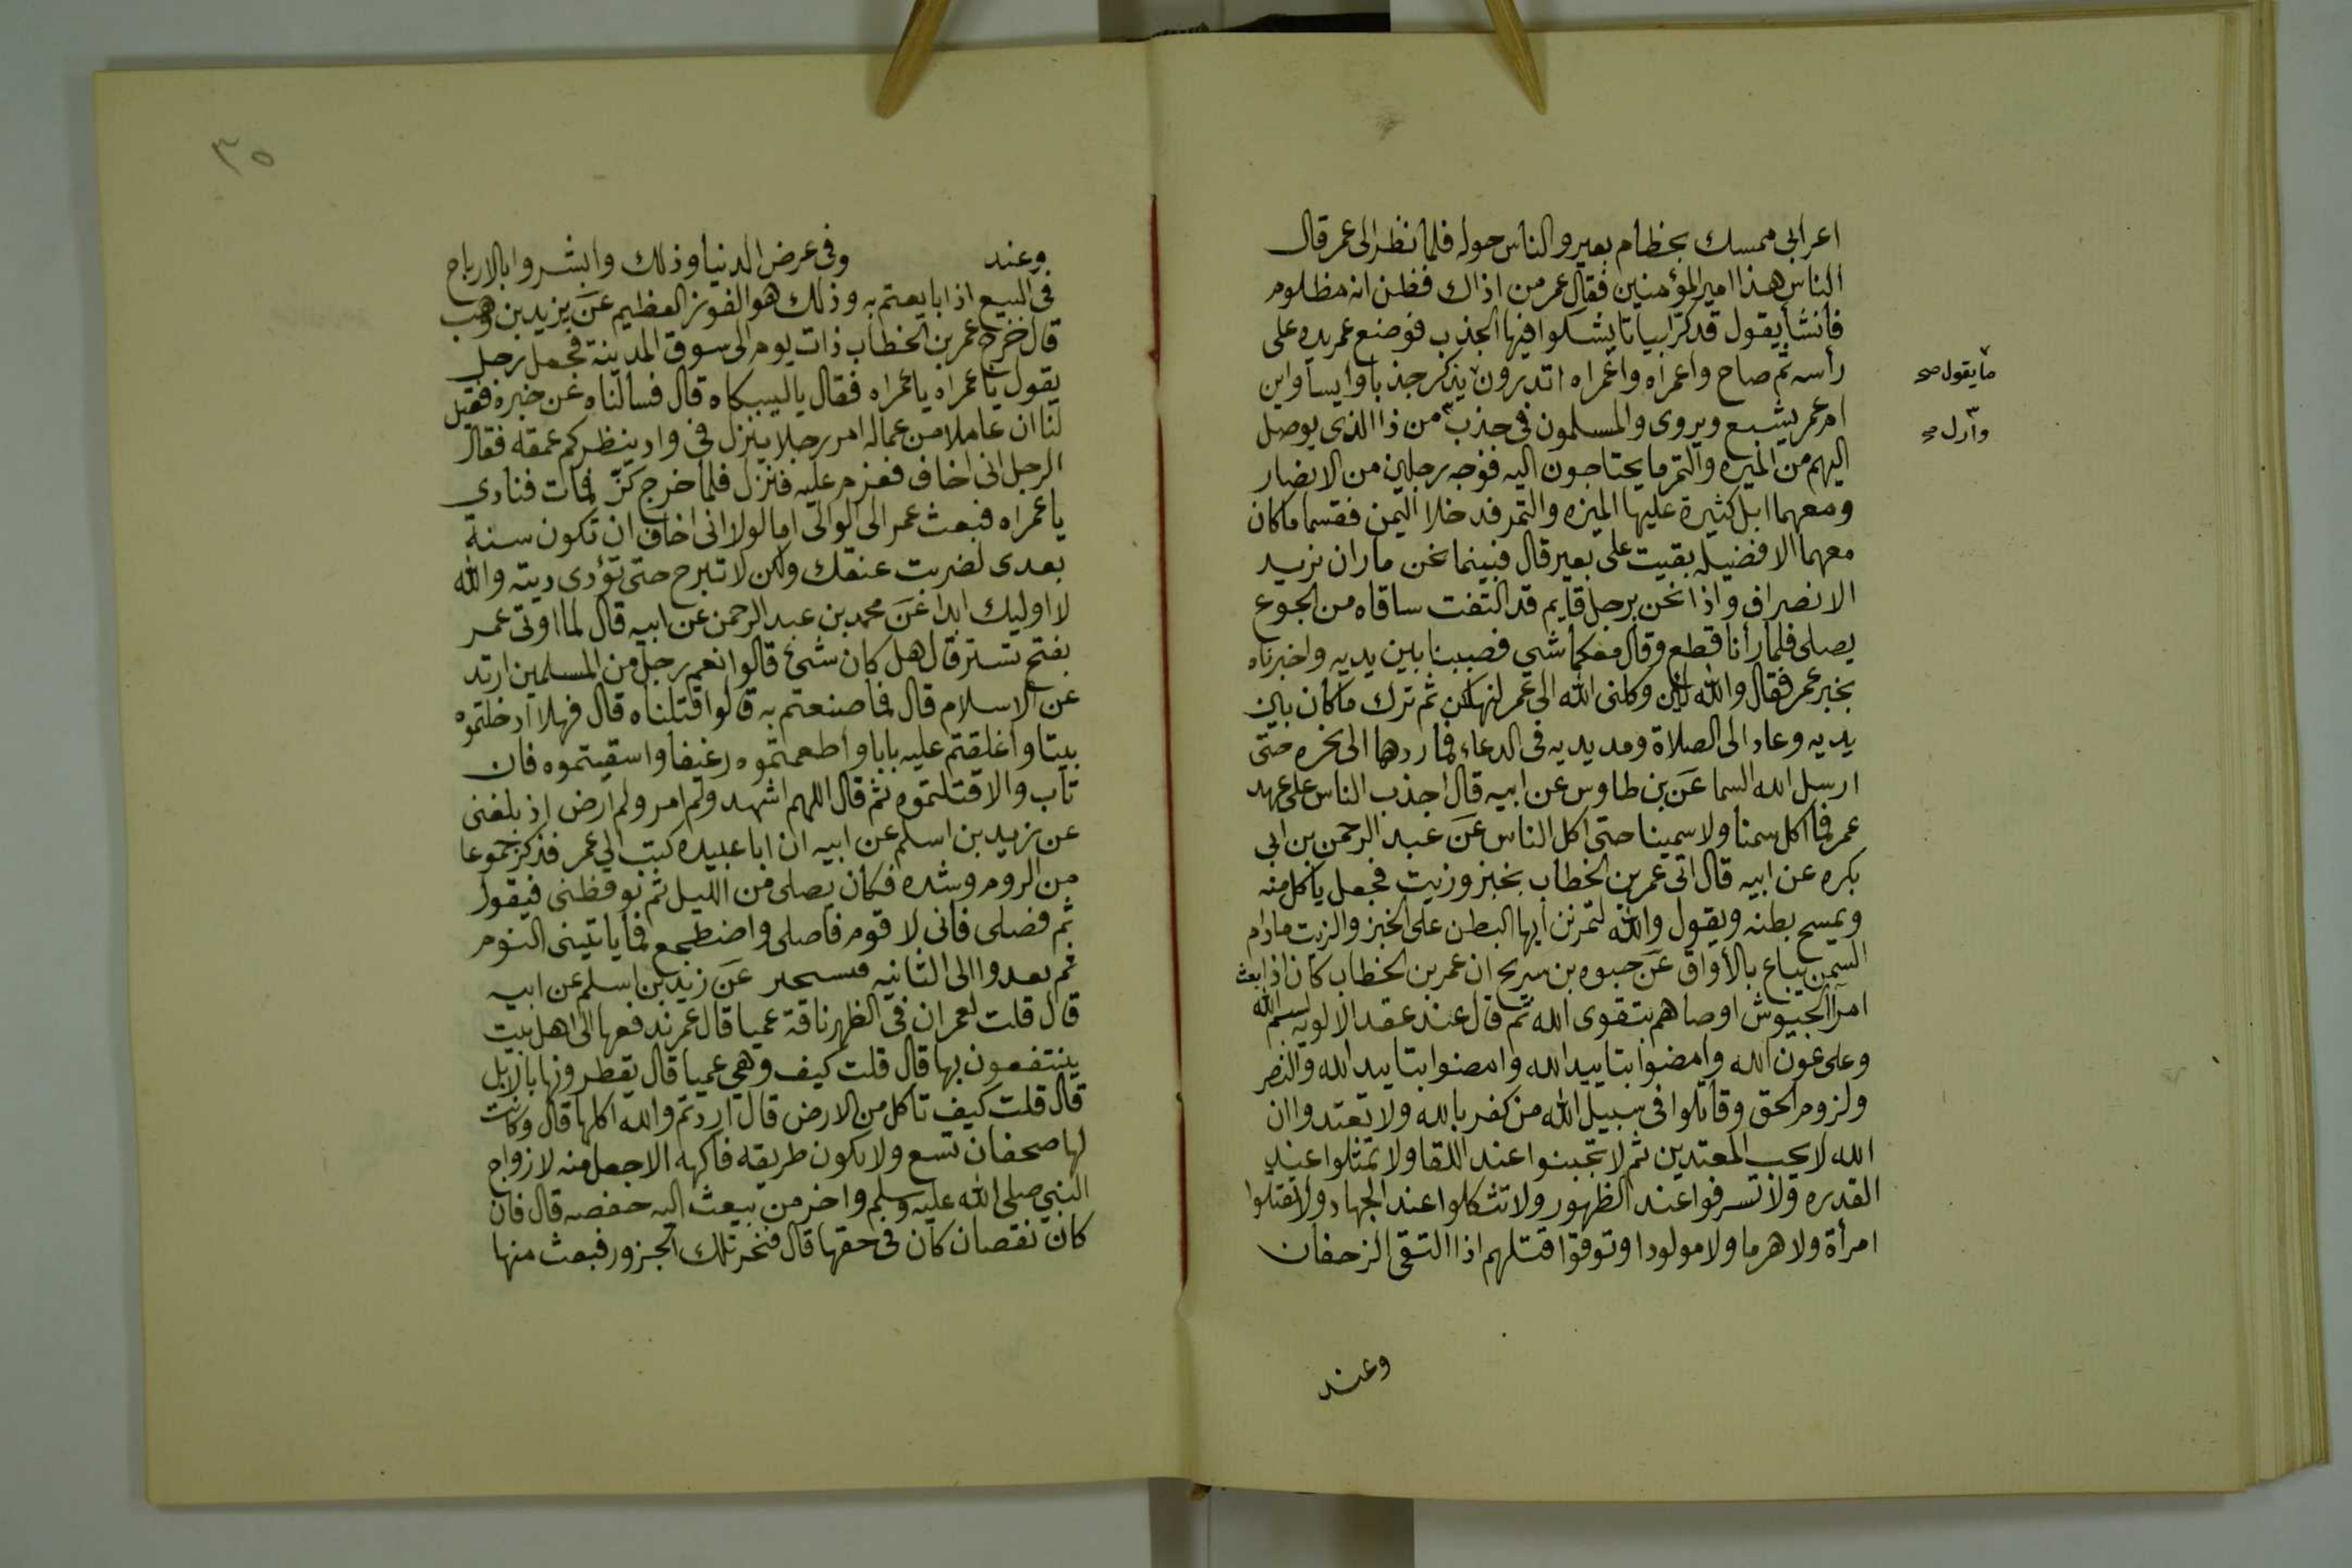 اعرابى ممسك بخطام بعير والناس حوله فلما نظر الى عمر قال
الناس هذا امير المؤمنين فقال عمر من اذاك فظن انه مظلوم
فأنشأ يقول قد كر ابياتا يشكوا فيها الجذب فوضع عمر يده على
رأسه ثم صاح واعمراه واعمراه اتدرون يذكر جذبا وايسا واين
ما يقول صح
ام عمر يشبع ويروى والمسلمون فى جذب من ذا الذى يوصل
وأزل صح
اليهم من الميره والتمر ما يحتاجون اليه فوجه رجلين من الانصار
ومعهما ابل كثيرة عليها الميره والتمر فدخلا اليمن فقسما ما كان
معهما الا فضيله بقيت على بعير قال فبينما نحن ماران نريد
الانصراف واذا نحن برجل قايم قد التفت ساقاه من الجوع
يصلى فلما رأنا قطع وقال معكما شى فصببنا بين يديه واخبرناه
بخبر عمر فقال والله لئن وكلنى الله الى عمر لنهلكن ثم ترك ما كان بين
يديه وعاد الى الصلاة ومد يديه فى الدعاء فما ردهما الى نحره حتى
ارسل الله السما عن بن طاوس عن ابيه قال اجذب الناس على عهد
عمر فما اكل سمنا ولا سمينا حتى اكل الناس عن عبد الرحمن بن ابى
بكره عن ابيه قال اتى عمر بن الخطاب بخبز وزيت فجعل ياكل منه
ويمسح بطنه ويقول والله لتمرنن ايها البطن على الخبز والزيت مادام
السمن يباع بالأواق عن حيوه بن سريح ان عمر بن الخطاب كان اذا بعث
امرآ الجيوش اوصاهم بتقوى الله ثم قال عند عقد الالويه بسم الله
وعلى عون الله وامضوا بتاييد الله وامضوا بتاييد الله والنصر
ولزوم الحق وقاتلوا فى سبيل الله من كفر بالله ولا تعتدوا ان
الله لا يحب المعتدين ثم لا تجبنوا عند اللقا ولا تمثلوا عند
القدره ولا تسرفوا عند الظهور ولا تنكلوا عند الجهاد ولا تقتلوا
امرأة ولا هرما ولا مولودا وتوقوا قتلهم اذا التقى الزحفان
وعند
٣٥
وعند وفى عرض الدنيا وذلك وابشروا بالارباح
فى البيع اذا بايعتم به وذلك هو الفوز العظيم عن يزيد بن وهب
قال خرج عمر بن الخطاب ذات يوم الى سوق المدينة فجعل رجل
يقول يا عمراه يا عمراه فقال يا لبيكاه قال فسألناه عن خبره فقيل
لنا ان عاملا من عماله امر رجلا ينزل فى واد ينظر كم عمقه فقال
الرجل انى اخاف فعزم عليه فنزل فلما خرج كز فمات فنادى
يا عمراه فبعث عمر الى الوالى اما لولا انى اخاف ان تكون سنة
بعدى لضربت عنقك ولكن لا تبرح حتى تؤدى ديته والله
لا اوليك ابدا عن محمد بن عبد الرحمن عن ابيه قال لما اوتى عمر
بفتح تستر قال هل كان شئ قالوا نعم رجل من المسلمين ارتد
عن الاسلام قال فما صنعتم به قالوا قتلناه قال فهلا ادخلتموه
بيتا واغلقتم عليه بابا واطعمتموه رغيفا واسقيتموه فان
تاب والا قتلتموه ثم قال اللهم اشهد ولم امر ولم ارض اذ بلغنى
عن زيد بن اسلم عن ابيه ان ابا عبيده كتب الى عمر فذكر جموعا
من الروم وشده فكان يصلى من الليل ثم يوقظنى فيقول
ثم فصلى فانى لا قوم فاصلى واضطجع فما ياتينى النوم
ثم يعدوا الى الثانيه عن زيد بن اسلم عن ابيه
قال قلت لعمر ان فى الظهر ناقة عميا قال عمر ندفعها الى اهل بيت
ينتفعون بها قال قلت كيف وهى عميا قال يقطرونها بالابل
قال قلت كيف تاكل من الارض قال اردتم والله اكلها قال وكانت
لها صحفان تسع ولا يكون طريقه فاكهه الا جعل منه لازواج
النبى صلى الله عليه وسلم واخر من يبعث اليه حفصه قال فان
كان نقصان كان فى حقها قال فنحر تلك الجزور فبعث منها